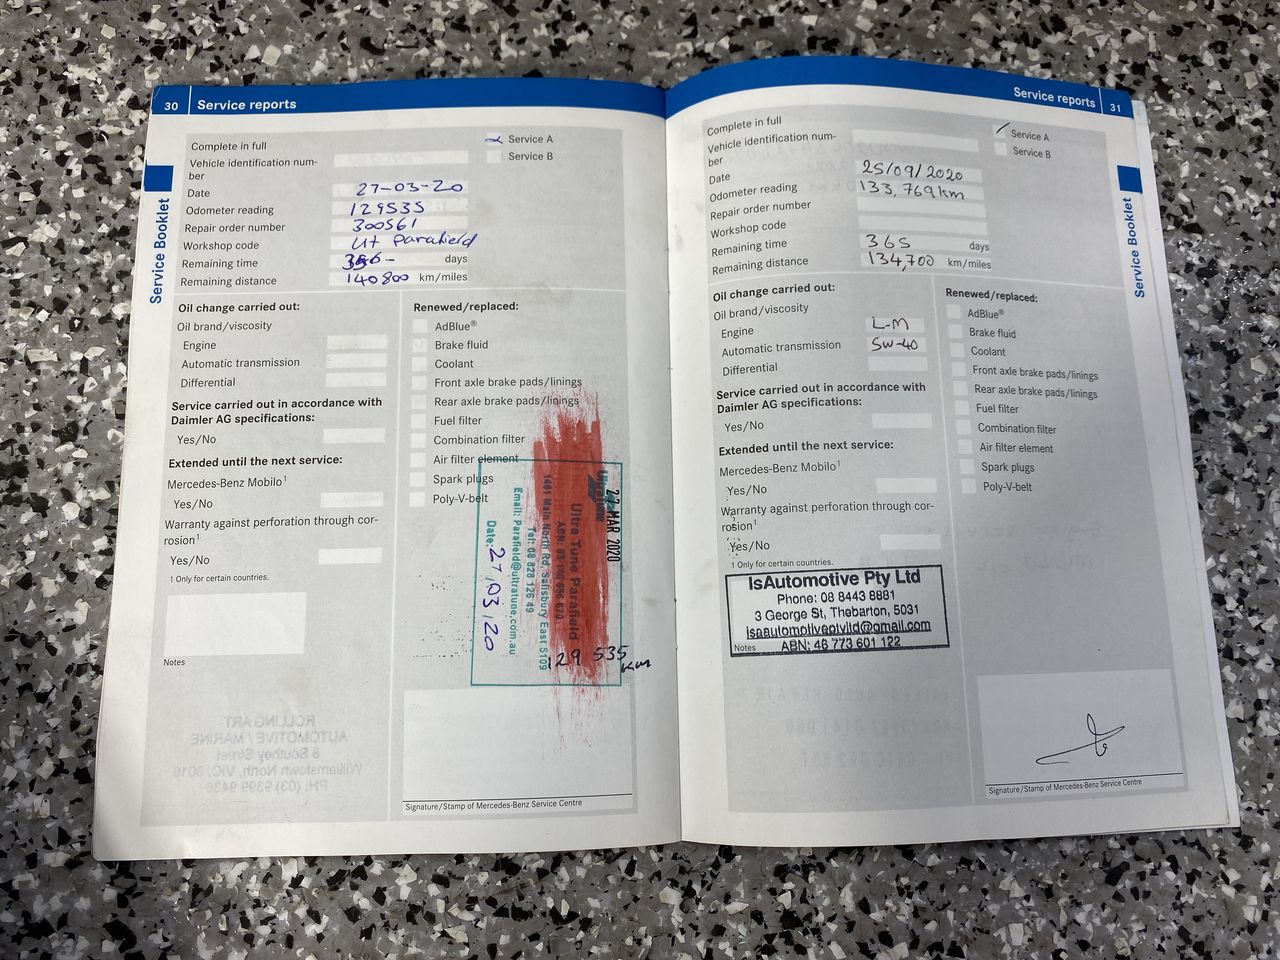 30 Service reports
Service Booklet
Complete in full
Service A
Service B
Vehicle identification num-
ber
Date 27-03-20
Odometer reading 129535
Repair order number 300561
Workshop code Ut Parafield
Remaining time days
Remaining distance 140800 km/miles
Oil change carried out:
Oil brand/viscosity
Engine
Automatic transmission
Differential
Service carried out in accordance with
Daimler AG specifications:
Yes/No
Extended until the next service:
Mercedes-Benz Mobilo¹
Yes/No
Warranty against perforation through cor-
rosion¹
Yes/No
¹ Only for certain countries.
Notes
Renewed/replaced:
AdBlue®
Brake fluid
Coolant
Front axle brake pads/linings
Rear axle brake pads/linings
Fuel filter
Combination filter
Air filter element
Spark plugs
Poly-V-belt
27 MAR 2020
Ultra Tune Parafield
1401 Main North Rd, Salisbury East 5109
Tel: 08 828 126 49
Email: Parafield@ultratune.com.au
Date: 27/03/20
129 535
km
Signature/Stamp of Mercedes-Benz Service Centre
ROLLING ART
AUTOMOTIVE / MARINE
8 Southey Street
Williamstown North, VIC, 3016
PH: (03) 9399 9436
Service reports 31
Service Booklet
Complete in full
Service A
Service B
Vehicle identification num-
ber
Date 25/09/2020
Odometer reading 133,769km
Repair order number
Workshop code
Remaining time 365 days
Remaining distance 134,700 km/miles
Oil change carried out:
Oil brand/viscosity
Engine L-M
Automatic transmission 5W-40
Differential
Service carried out in accordance with
Daimler AG specifications:
Yes/No
Extended until the next service:
Mercedes-Benz Mobilo¹
Yes/No
Warranty against perforation through cor-
rosion¹
Yes/No
¹ Only for certain countries.
IsAutomotive Pty Ltd
Phone: 08 8443 8881
3 George St, Thebarton, 5031
isaautomotiveptyltd@gmail.com
Notes ABN: 46 773 601 122
Renewed/replaced:
AdBlue®
Brake fluid
Coolant
Front axle brake pads/linings
Rear axle brake pads/linings
Fuel filter
Combination filter
Air filter element
Spark plugs
Poly-V-belt
Signature/Stamp of Mercedes-Benz Service Centre